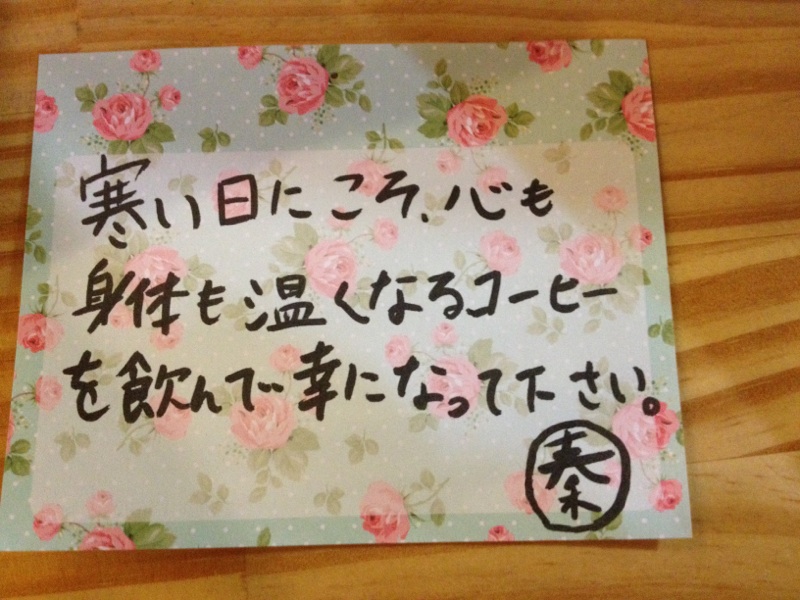 寒い日にこそ、心も
身体も温くなるコーヒー
を飲んで幸になって下さい。
秦